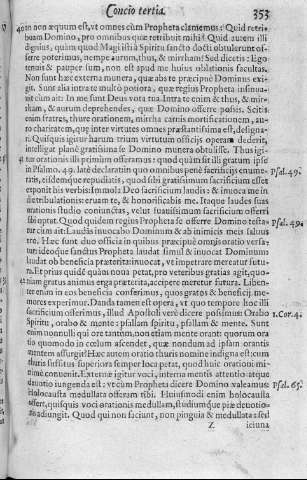 Concio tertia. 353
non æquum est, vt omnes cum Propheta clamemus: Quid retri
buam Domino, pro omnibus quæ retribuit mihi? Quid autem illi
dignius, quàm quod Magi isti à Spiritu sancto docti obtulerunt of-
ferre poterimus, nempe aurum, thus, & mirrham? Sed dicetis: Ego
tenuis & pauper sum, non est apud me huius oblationis facultas.
Non sunt hæc externa munera, quæ abs te præcipuè Dominus exi-
git. Sunt alia intra te multò potiora, quæ regius Propheta insinua-
uit cum ait: In me sunt Deus vota tua. Intra te enim & thus, & mir-
rham, & aurum deprehendes, quæ Domino offerre possis. Scitis
enim fratres, thure orationem, mirrha carnis mortificationem, au-
ro charitatem, quæ inter virtutes omnes præstantissima est, designa-
ri. Quisquis igitur harum trium virtutum officijs operam dederit,
intelligat planè gratissima se Domino munera obtulisse. Thus igi-
tur orationis illi primùm offeramus: quod quàm sit illi gratum ipse
in Psalmo. 49. latè declarat: in quo omnibus penè sacrificijs enume- Psal. 49.
ratis, eisdemque repudiatis, quod sibi gratissimum sacrificium esset
exponit his verbis: Immola Deo sacrificium laudis: & inuoca me in
die tribulationis: eruam te, & honorificabis me. Itaque laudes suas
orationis studio coniunctas, velut suauissimum sacrificium offerri
sibi optat. Quod quidem regius Propheta se offerre Domino testa- Psal. 49.
tur cum ait: Laudans inuocabo Dominum & ab inimicis meis saluus
ero. Hæc sunt duo officia in quibus præcipuè omnis oratio versa-
tur: ideoque sanctus Propheta laudat simul & inuocat Dominum:
laudat ob beneficia præterita: inuocat, vt impetrare mereatur futu-
ra. Et prius quidè quàm noua petat, pro veteribus gratias agit, quo-
niam gratus animus erga præterita, accipere meretur futura. Liben-
ter enim in eos beneficia conferimus, quos gratos & beneficij me-
mores experimur. Danda tamen est opera, vt quo tempore hoc illi
sacrificium offerimus, illud Apostoli verè dicere possimus: Orabo 1. Cor. 4.
Spiritu, orabo & mente: psallam spiritu, psallam & mente. Sunt
enim nonnulli qui ore tantum, non etiam mente orant: quorum ora
tio quomodo in cœlum ascendet, quæ nondum ad ipsam orantis
mentem assurgit? Hæc autem oratio thuris nomine indigna est: cum
thuris suffitus superiora semper loca petat, quod huic orationi mi-
nimè conuenit. Externæ igitur voci, interna mentis attentio atque
deuotio iungenda est: vt cum Propheta dicere Domino valeamus Psal. 65.
Holocausta medullata offeram tibi. Huiusmodi enim holocausta
offert, quisquis voci orationis medullam, studiumque piæ deuotio-
nis adiungit. Quod qui non faciunt, non pinguia & medullata sed
Z ieiuna